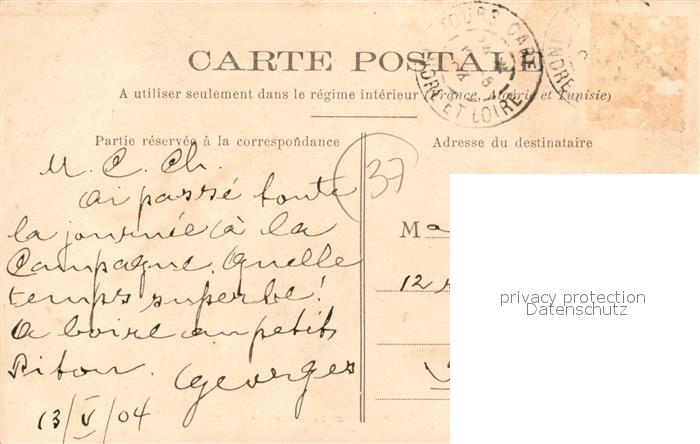 CARTE POSTALE
A utiliser seulement dans le régime intérieur (France, Algérie et Tunisie)
Partie réservée à la correspondance
Adresse du destinataire
37
M. C. Ch.
Ai passé toute
la journée à la
Campagne. Quelle
temps superbe!
A boire au petit
Georges
13/V/04
Ma
12
TOURS GARE
INDRE ET LOIRE
INDRE
privacy protection
Datenschutz